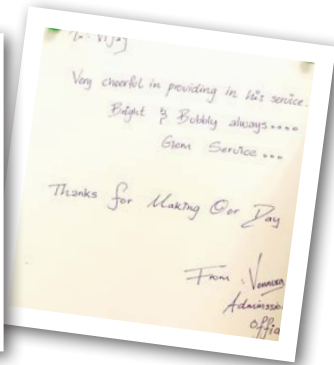 To - Vijay
Very cheerful in providing in his service.
Bright & Bubbly always....
Service ...
Thanks for Making Our Day
From :
Admission
Offic